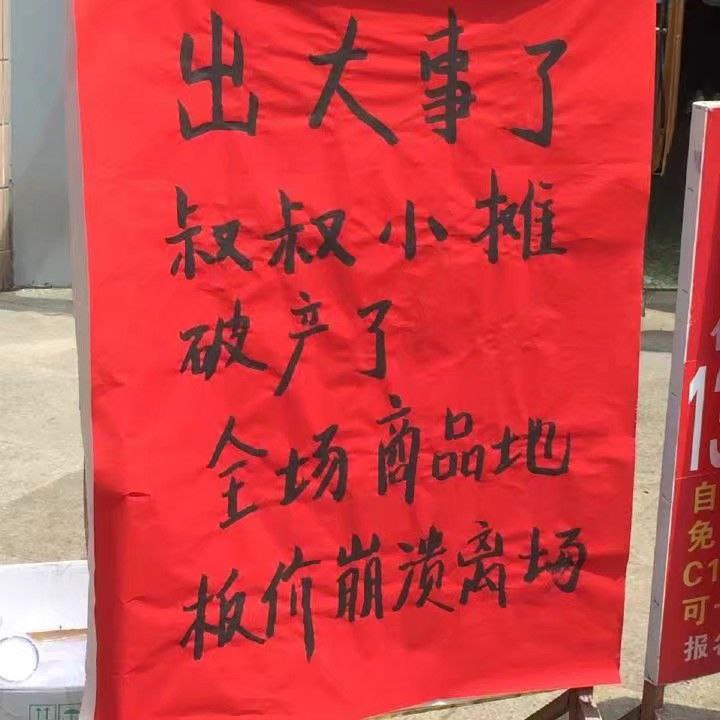 出大事了
叔叔小摊
破产了
全场商品地
板价崩溃离场
1
自
免
C1
可
报